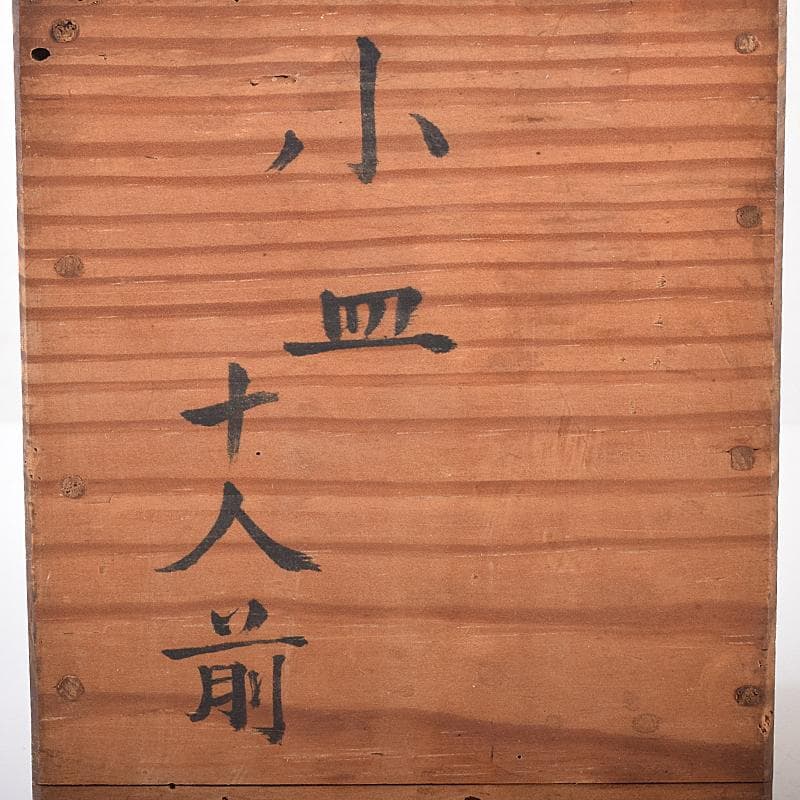 小皿
十人前